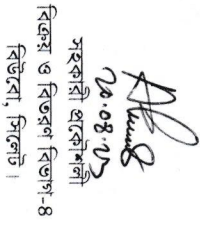 ২০.০৪.২৩
সহকারী প্রকৌশলী
বিক্রয় ও বিতরণ বিভাগ-৪
বিউবো, সিলেট।